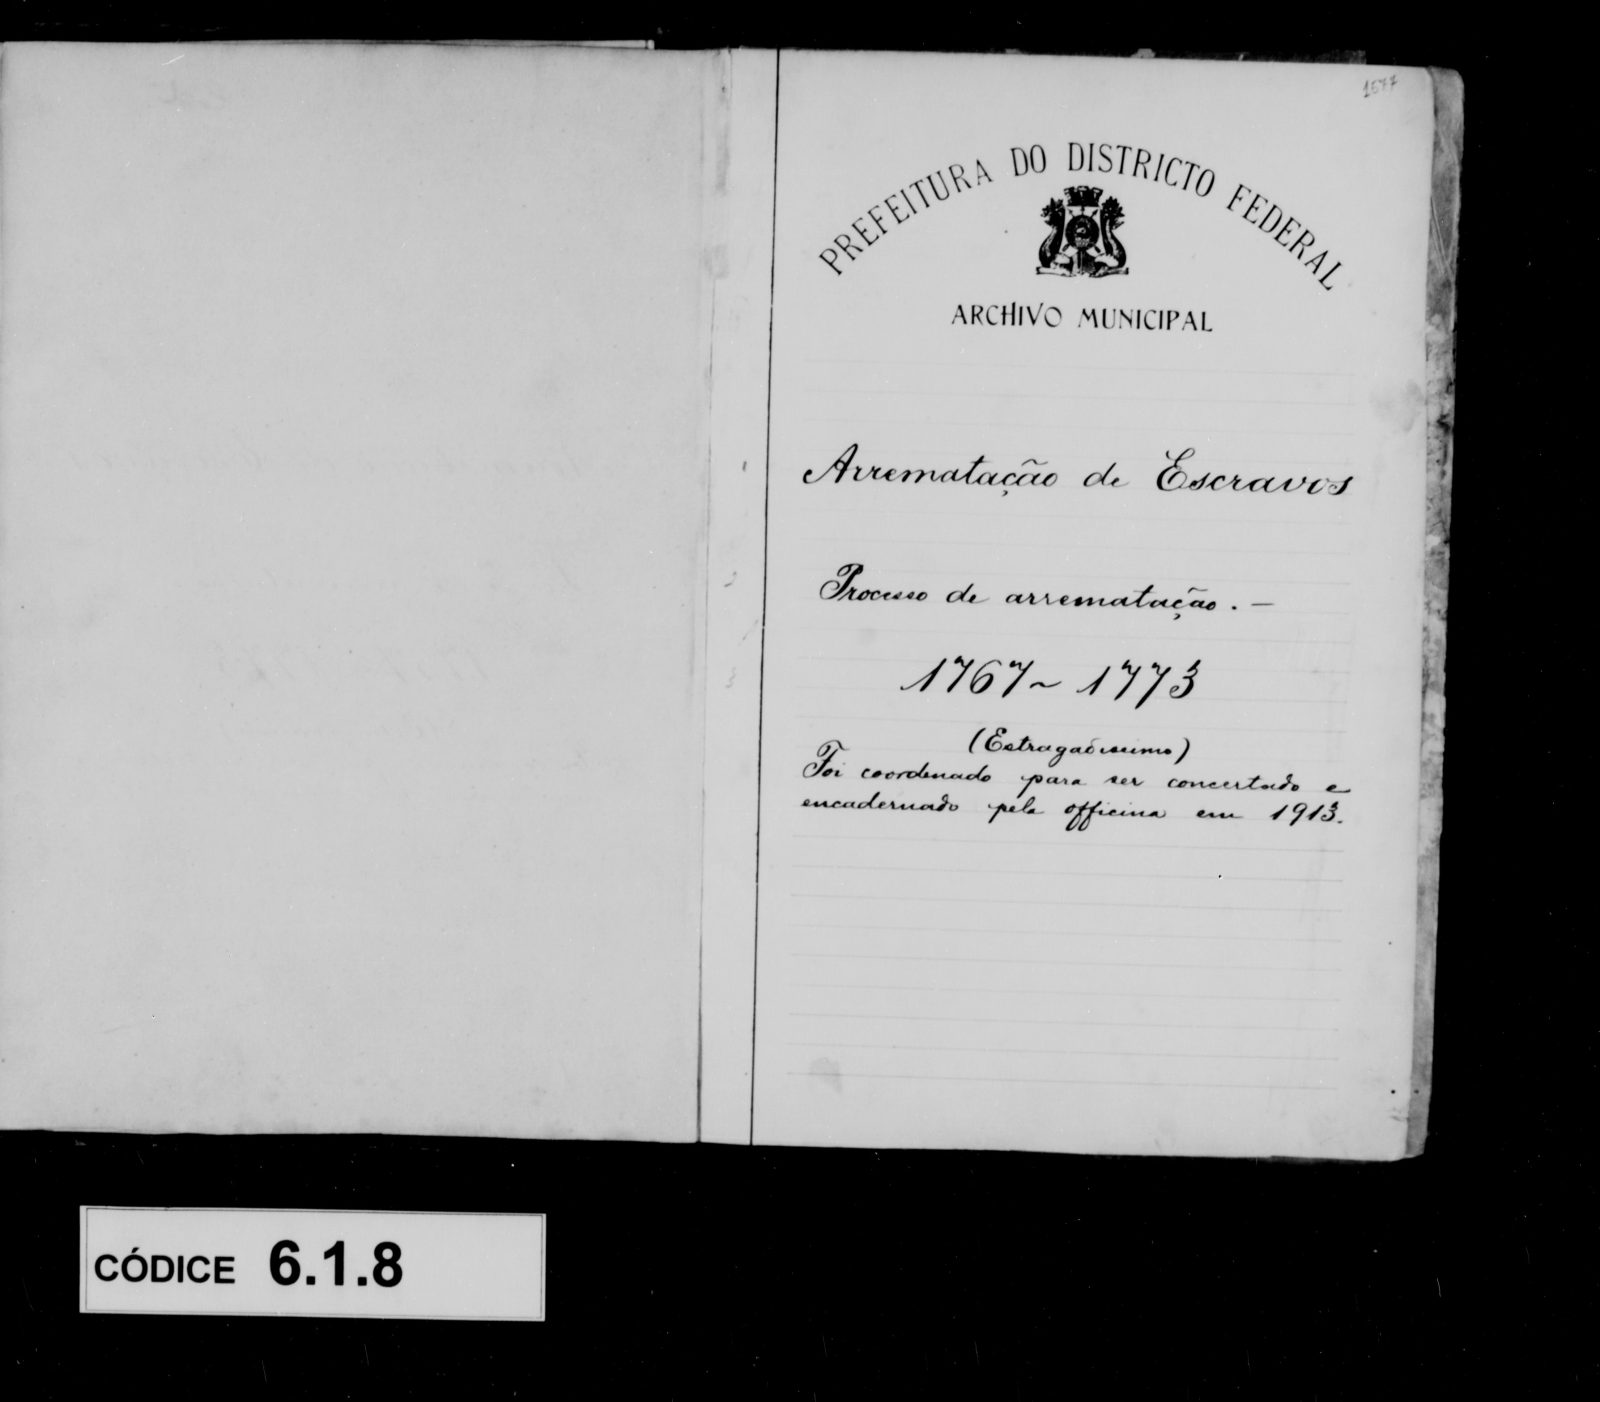 1577
PREFEITURA DO DISTRICTO FEDERAL
ARCHIVO MUNICIPAL
Arrematação de Escravos
Processo de arrematação. —
1767 ~ 1773
(Estragadissimo)
Foi coordenado para ser concertado e
encadernado pela officina em 1913.
CÓDICE 6.1.8